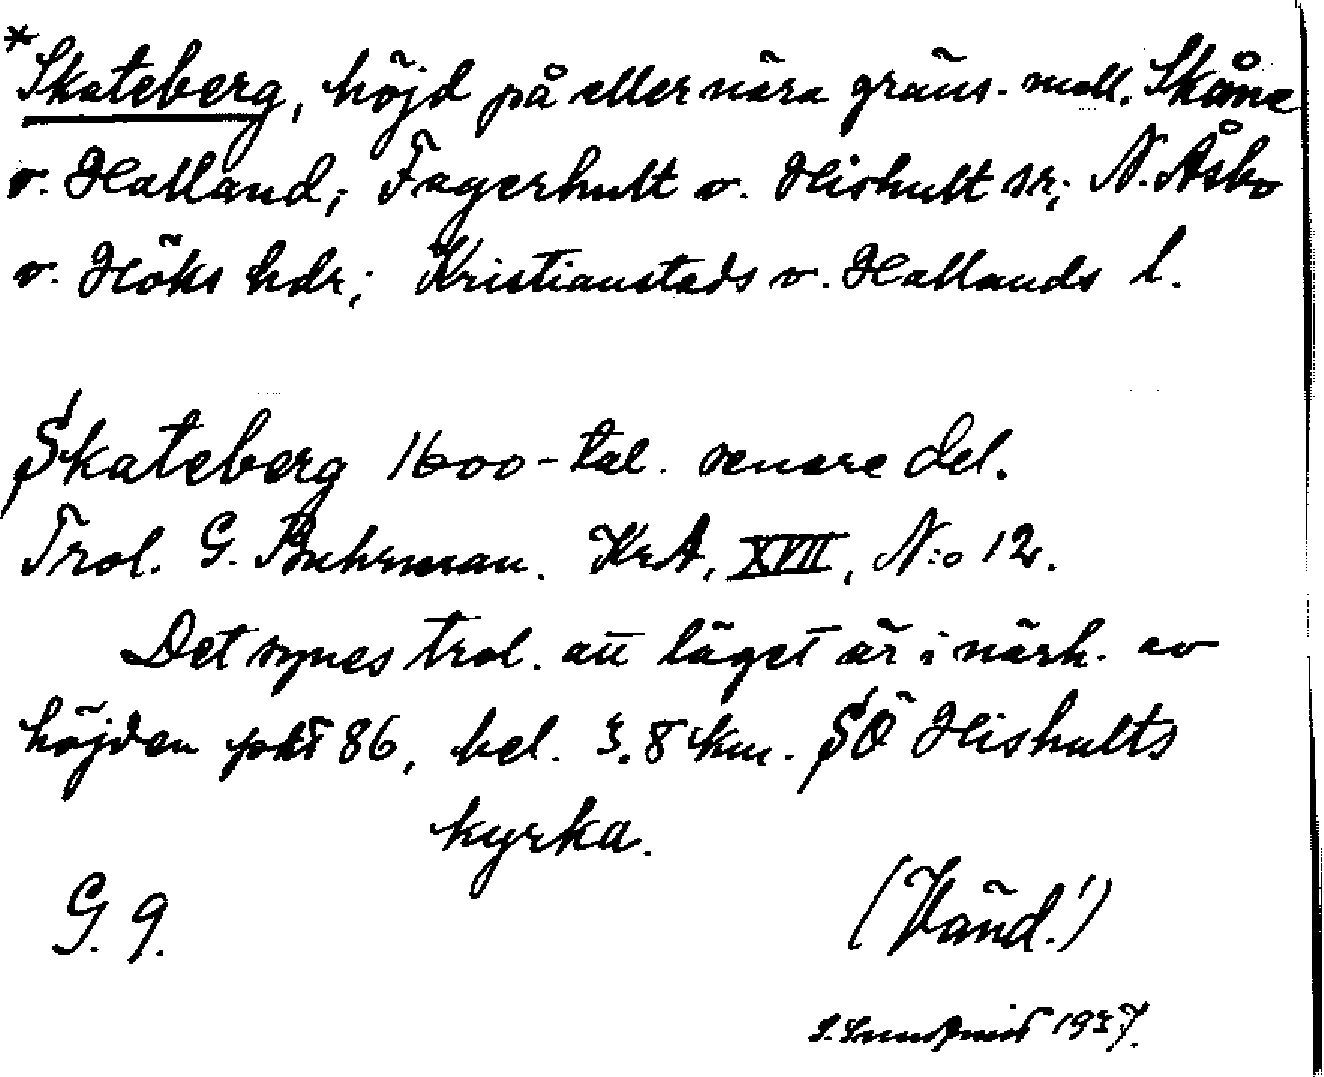 *Skateberg, höjd på eller nära gräns. mell. Skåne
o. Halland; Fagerhult o. Hishult sr; N. Åsbo
o. Höks hdr; Kristianstads o. Hallands l.
Skateberg 1600-tal. senare del.
Trol. G. Buhrman. KrA, XVII, N:o 12.
Det synes trol. att läget är i närh. av
höjden pkt 86, bel. 3.8 km. SÖ Hishults
kyrka.
G. 9.
(Vänd!)
S. Lundqvist 1937.